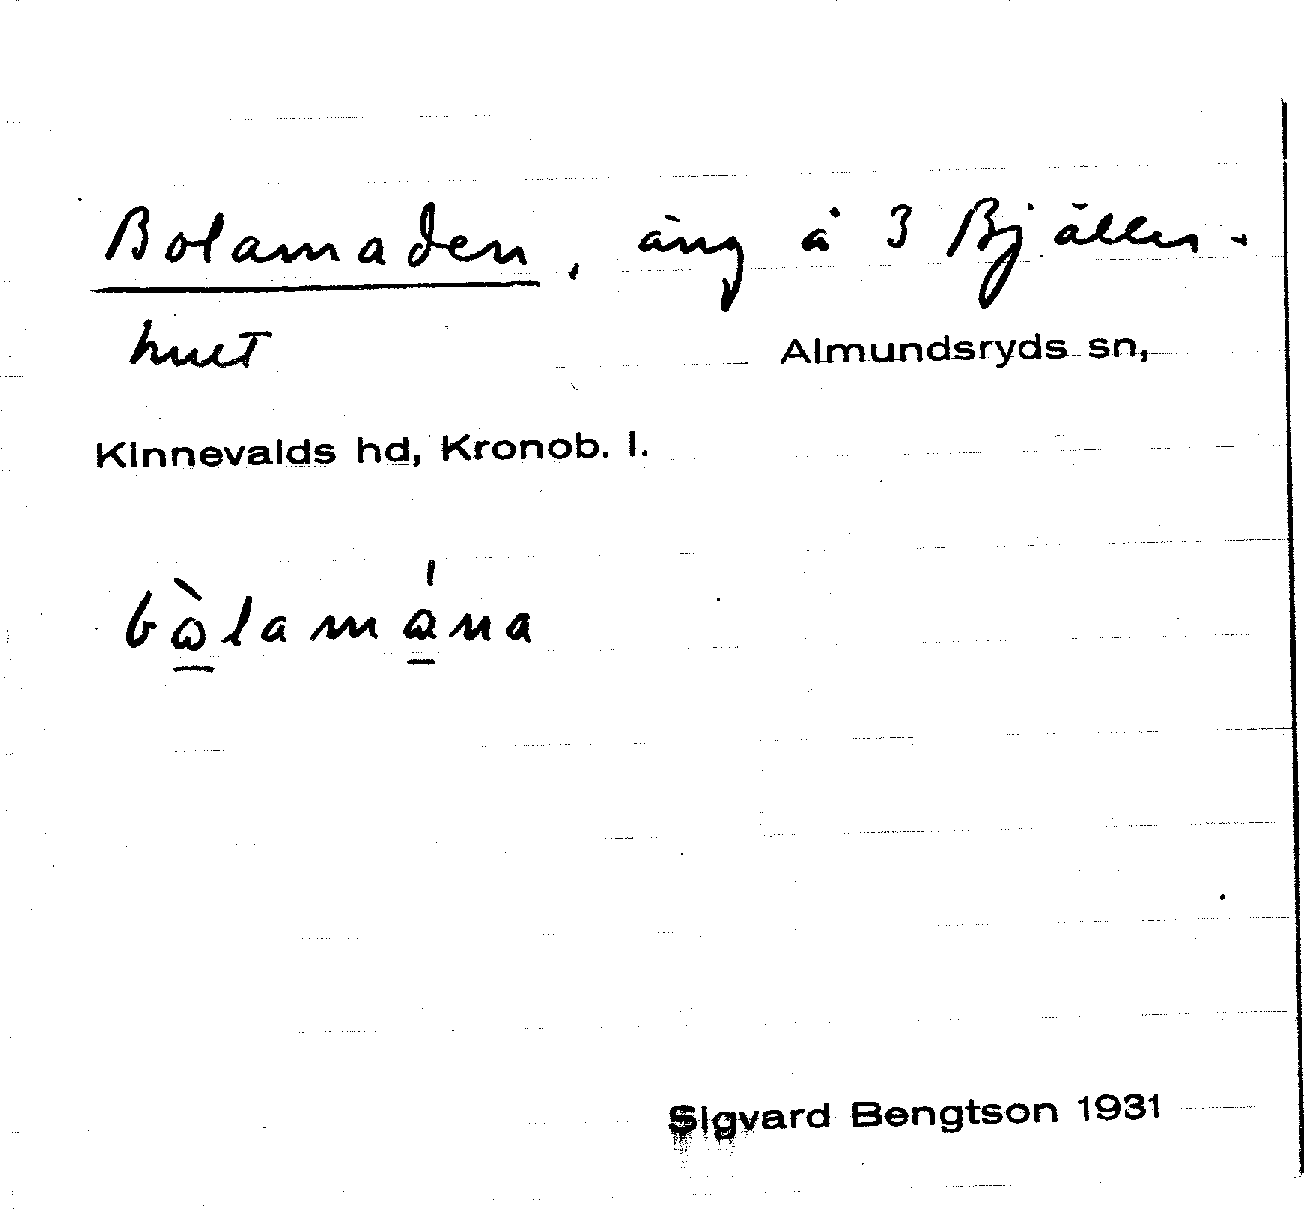 Bolamaden, äng å 3 Bjäller-
hult Almundsryds sn,
Kinnevalds hd, Kronob. l.
bὼ̲lamά̲na
Sigvard Bengtson 1931